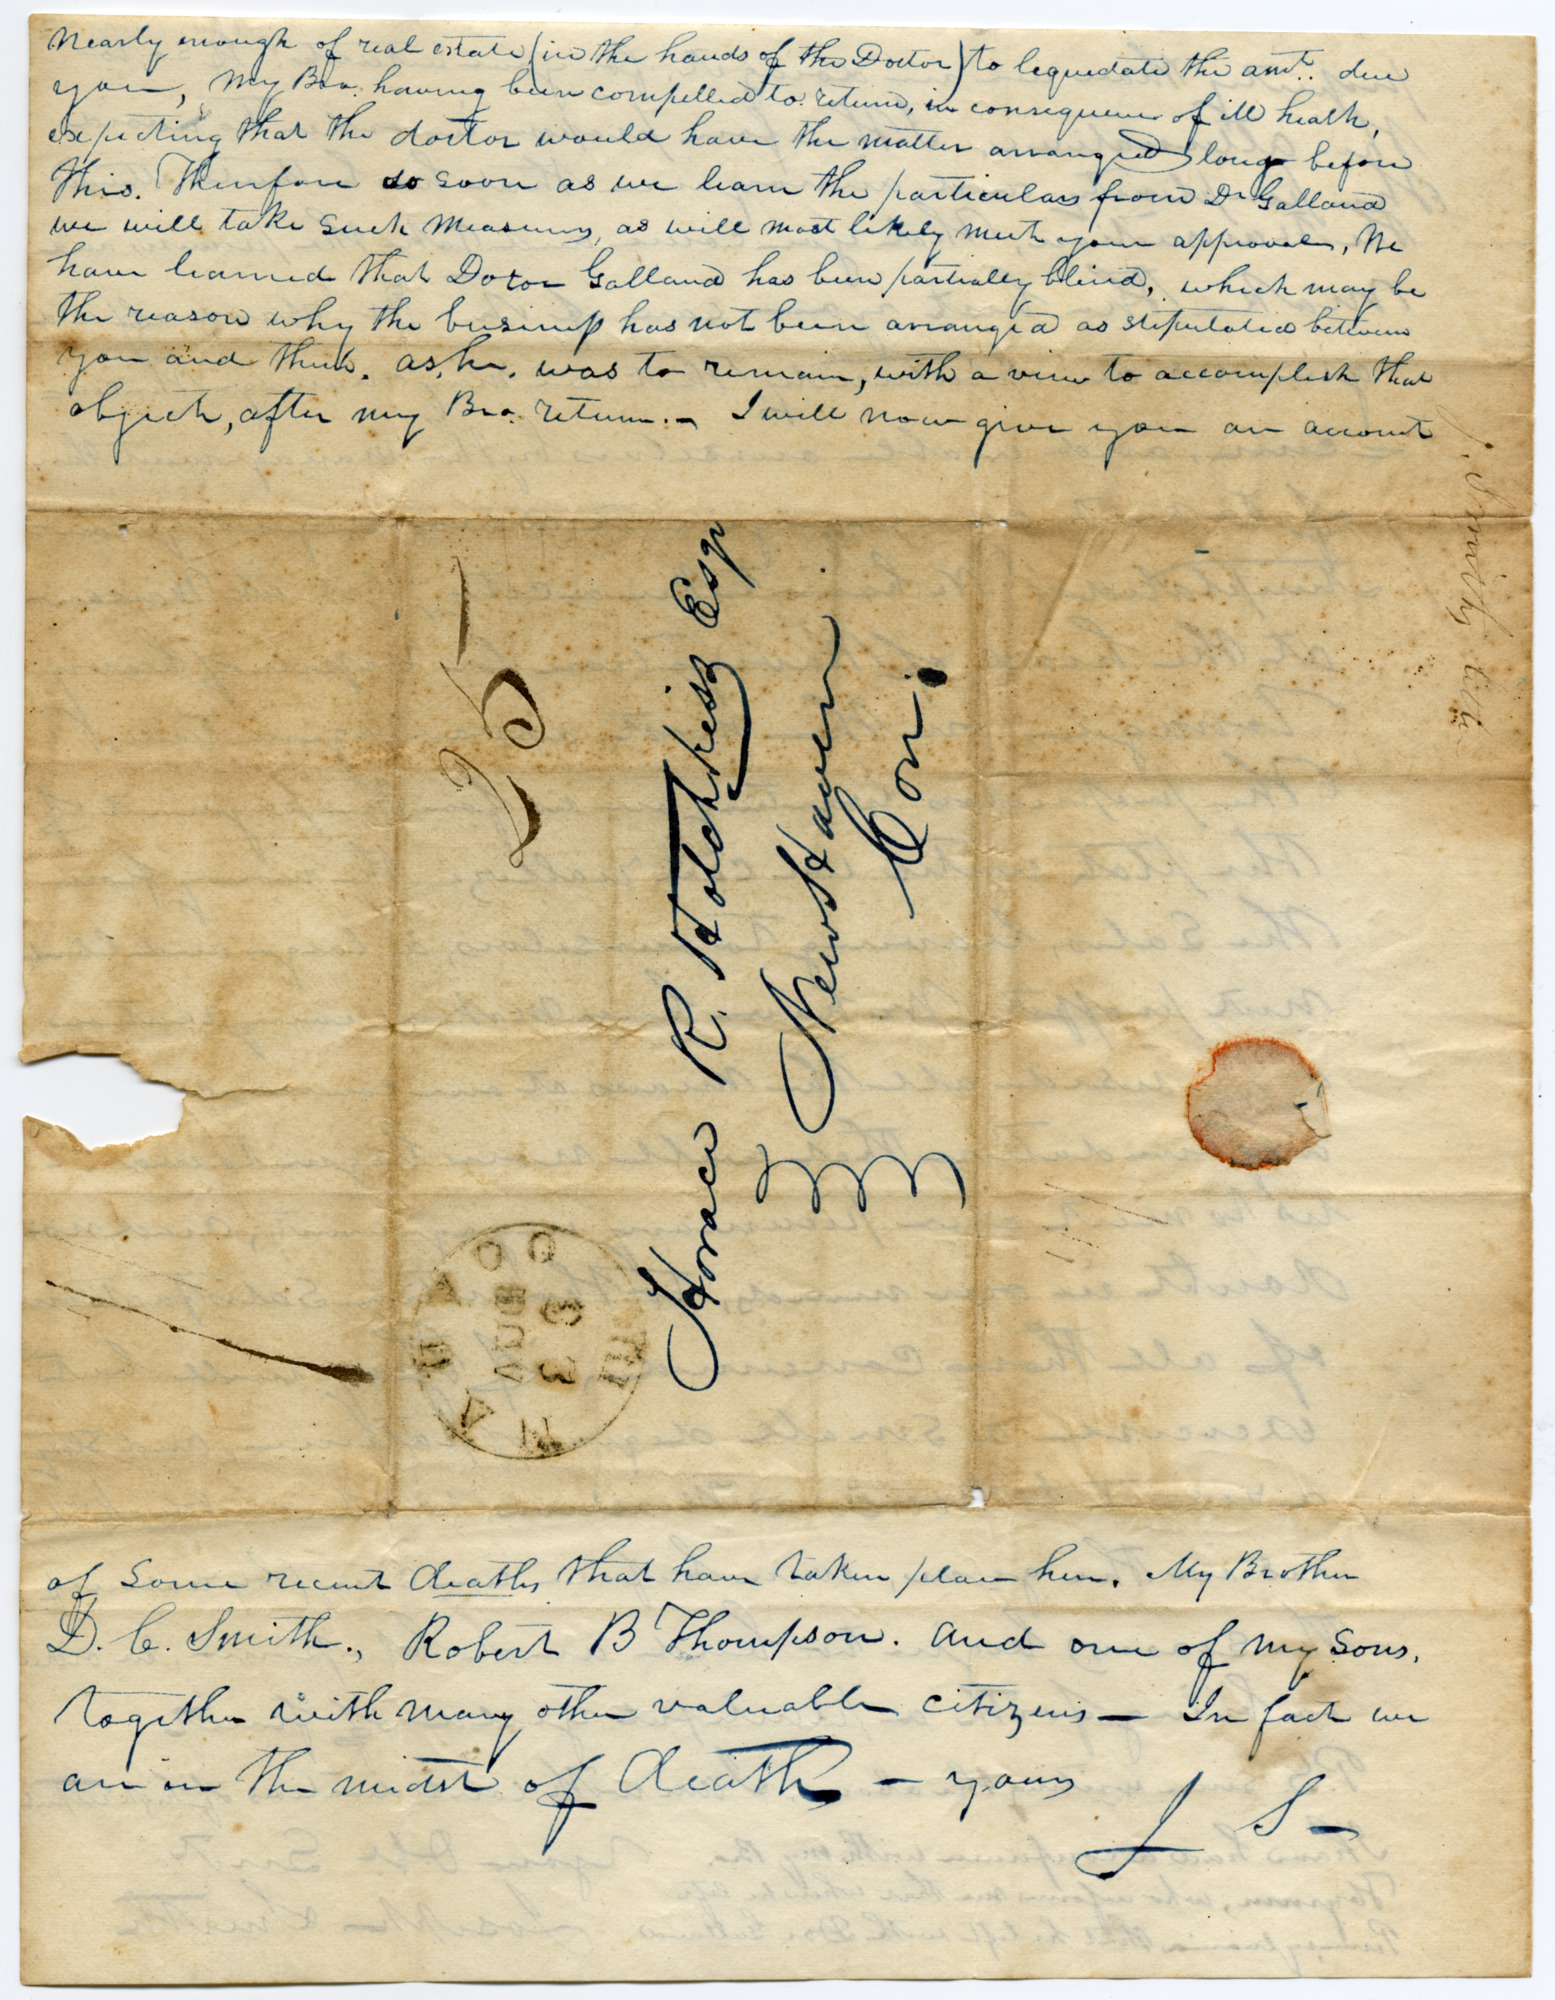 nearly enough of real estate (in the hands of the Doctor) to lequedate the amt.. due
you, My Bro. having been compelled to return, in consequence of ill health,
expecting that the doctor would have the matter arranged long before
this. Therefore so soon as we learn the particulars from Dr Galland
we will take such measures, as will most likely meet your approval, We
have learned that Doctor Galland has been partially blind, which may be
the reason why the business has not been arranged as stipulated between
you and them. as, he, was to remain, with a view to accomplish that
object, after my Bro. return.- I will now give you an account
J. Smiths
25
Horace R. Hotchkiss Esqr
New Haven
Con.
NAUVOO ILL
AUG
of some recent deaths that have taken place here. My Brother
D. C. Smith., Robert B Thompson. and one of my sons,
together with many other valuable citizens — In fact we
are in the midst of death — yours
J S—